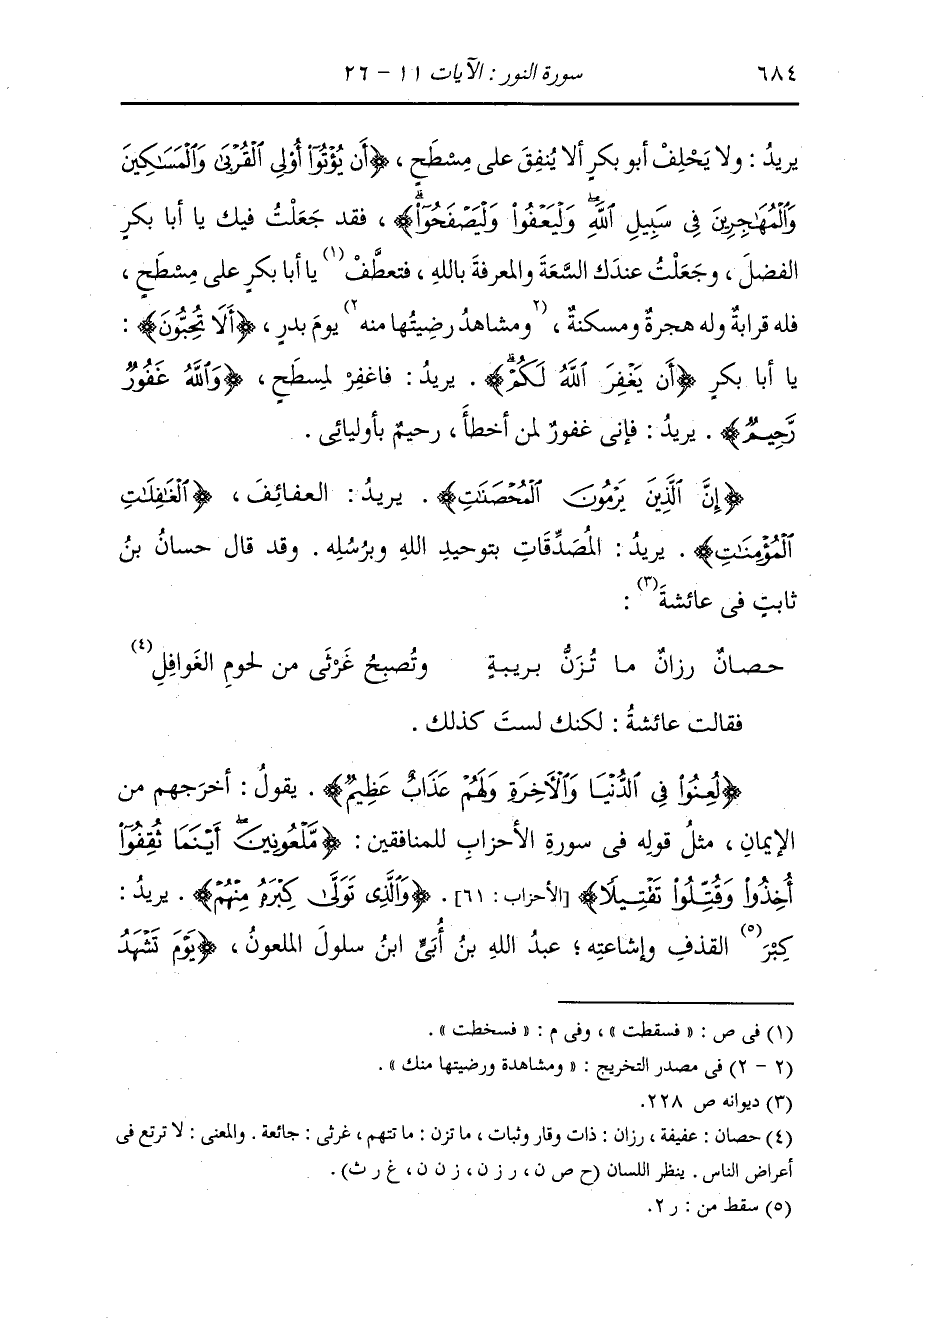 ٦٨٤ سورة النور : الآيات ١١ - ٢٦
يريدُ : ولا يَحْلِفْ أبو بكرٍ ألا يُنفِقَ على مِسْطَحٍ ، ﴿أَن يُؤْتُوٓا۟ أُو۟لِى ٱلْقُرْبَىٰ وَٱلْمَسَـٰكِينَ
وَٱلْمُهَـٰجِرِينَ فِى سَبِيلِ ٱللَّهِۖ وَلْيَعْفُوا۟ وَلْيَصْفَحُوٓا۟ۗ﴾ ، فقد جَعَلْتُ فيك يا أبا بكرٍ
الفضلَ ، وجَعَلْتُ عندَك السَّعَةَ والمعرفةَ باللهِ ، فتعطَّفْ(١) يا أبا بكرٍ على مِسْطَحٍ ،
فله قرابةٌ وله هجرةٌ ومسكنةٌ ، (٢ومشاهدُ رضِيتُها منه٢) يومَ بدرٍ ، ﴿أَلَا تُحِبُّونَ﴾ :
يا أبا بكرٍ ﴿أَن يَغْفِرَ ٱللَّهُ لَكُمْۗ﴾ . يريدُ : فاغفِرْ لمِسطَحٍ ، ﴿وَٱللَّهُ غَفُورٌ
رَّحِيمٌ﴾ . يريدُ : فإنى غفورٌ لمن أخطأَ ، رحيمٌ بأوليائِى .
﴿إِنَّ ٱلَّذِينَ يَرْمُونَ ٱلْمُحْصَنَـٰتِ﴾ . يريدُ : العفائِفَ ، ﴿ٱلْغَـٰفِلَـٰتِ
ٱلْمُؤْمِنَـٰتِ﴾ . يريدُ : المُصَدِّقَاتِ بتوحيدِ اللهِ وبرُسُلِه . وقد قال حسانُ بنُ
ثابتٍ فى عائشةَ(٣) :
حصانٌ رزانٌ ما تُزَنُّ بريبةٍ وتُصبِحُ غَرْثَى من لحومِ الغَوافِلِ(٤)
فقالت عائشةُ : لكنك لستَ كذلك .
﴿لُعِنُوا۟ فِى ٱلدُّنْيَا وَٱلْـَٔاخِرَةِ وَلَهُمْ عَذَابٌ عَظِيمٌ﴾ . يقولُ : أخرَجهم من
الإيمانِ ، مثلُ قولِه فى سورةِ الأحزابِ للمنافقين : ﴿مَّلْعُونِينَۖ أَيْنَمَا ثُقِفُوٓا۟
أُخِذُوا۟ وَقُتِّلُوا۟ تَقْتِيلًا﴾ [الأحزاب : ٦١] . ﴿وَٱلَّذِى تَوَلَّىٰ كِبْرَهُۥ مِنْهُمْ﴾ . يريدُ :
كِبْرَ(٥) القذفِ وإشاعتِه ؛ عبدُ اللهِ بنُ أُبَىٍّ ابنُ سلولَ الملعونُ ، ﴿يَوْمَ تَشْهَدُ
(١) فى ص : « فسقطت » ، وفى م : « فسخطت » .
(٢ - ٢) فى مصدر التخريج : « ومشاهدة ورضيتها منك » .
(٣) ديوانه ص ٢٢٨.
(٤) حصان : عفيفة ، رزان : ذات وقار وثبات ، ما تزن : ما تتهم ، غرثى : جائعة . والمعنى : لا ترتع فى
أعراض الناس . ينظر اللسان (ح ص ن ، ر ز ن ، ز ن ن ، غ ر ث) .
(٥) سقط من : ر ٢.